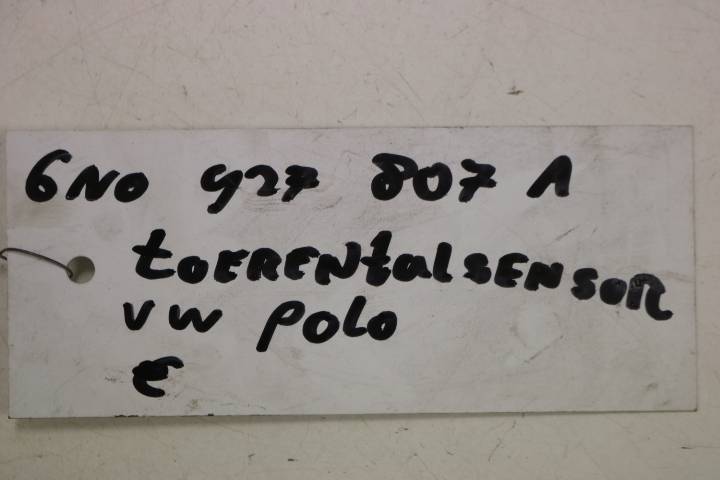 6N0 927 807 A
toERENtalsENSOR
VW POLO
€